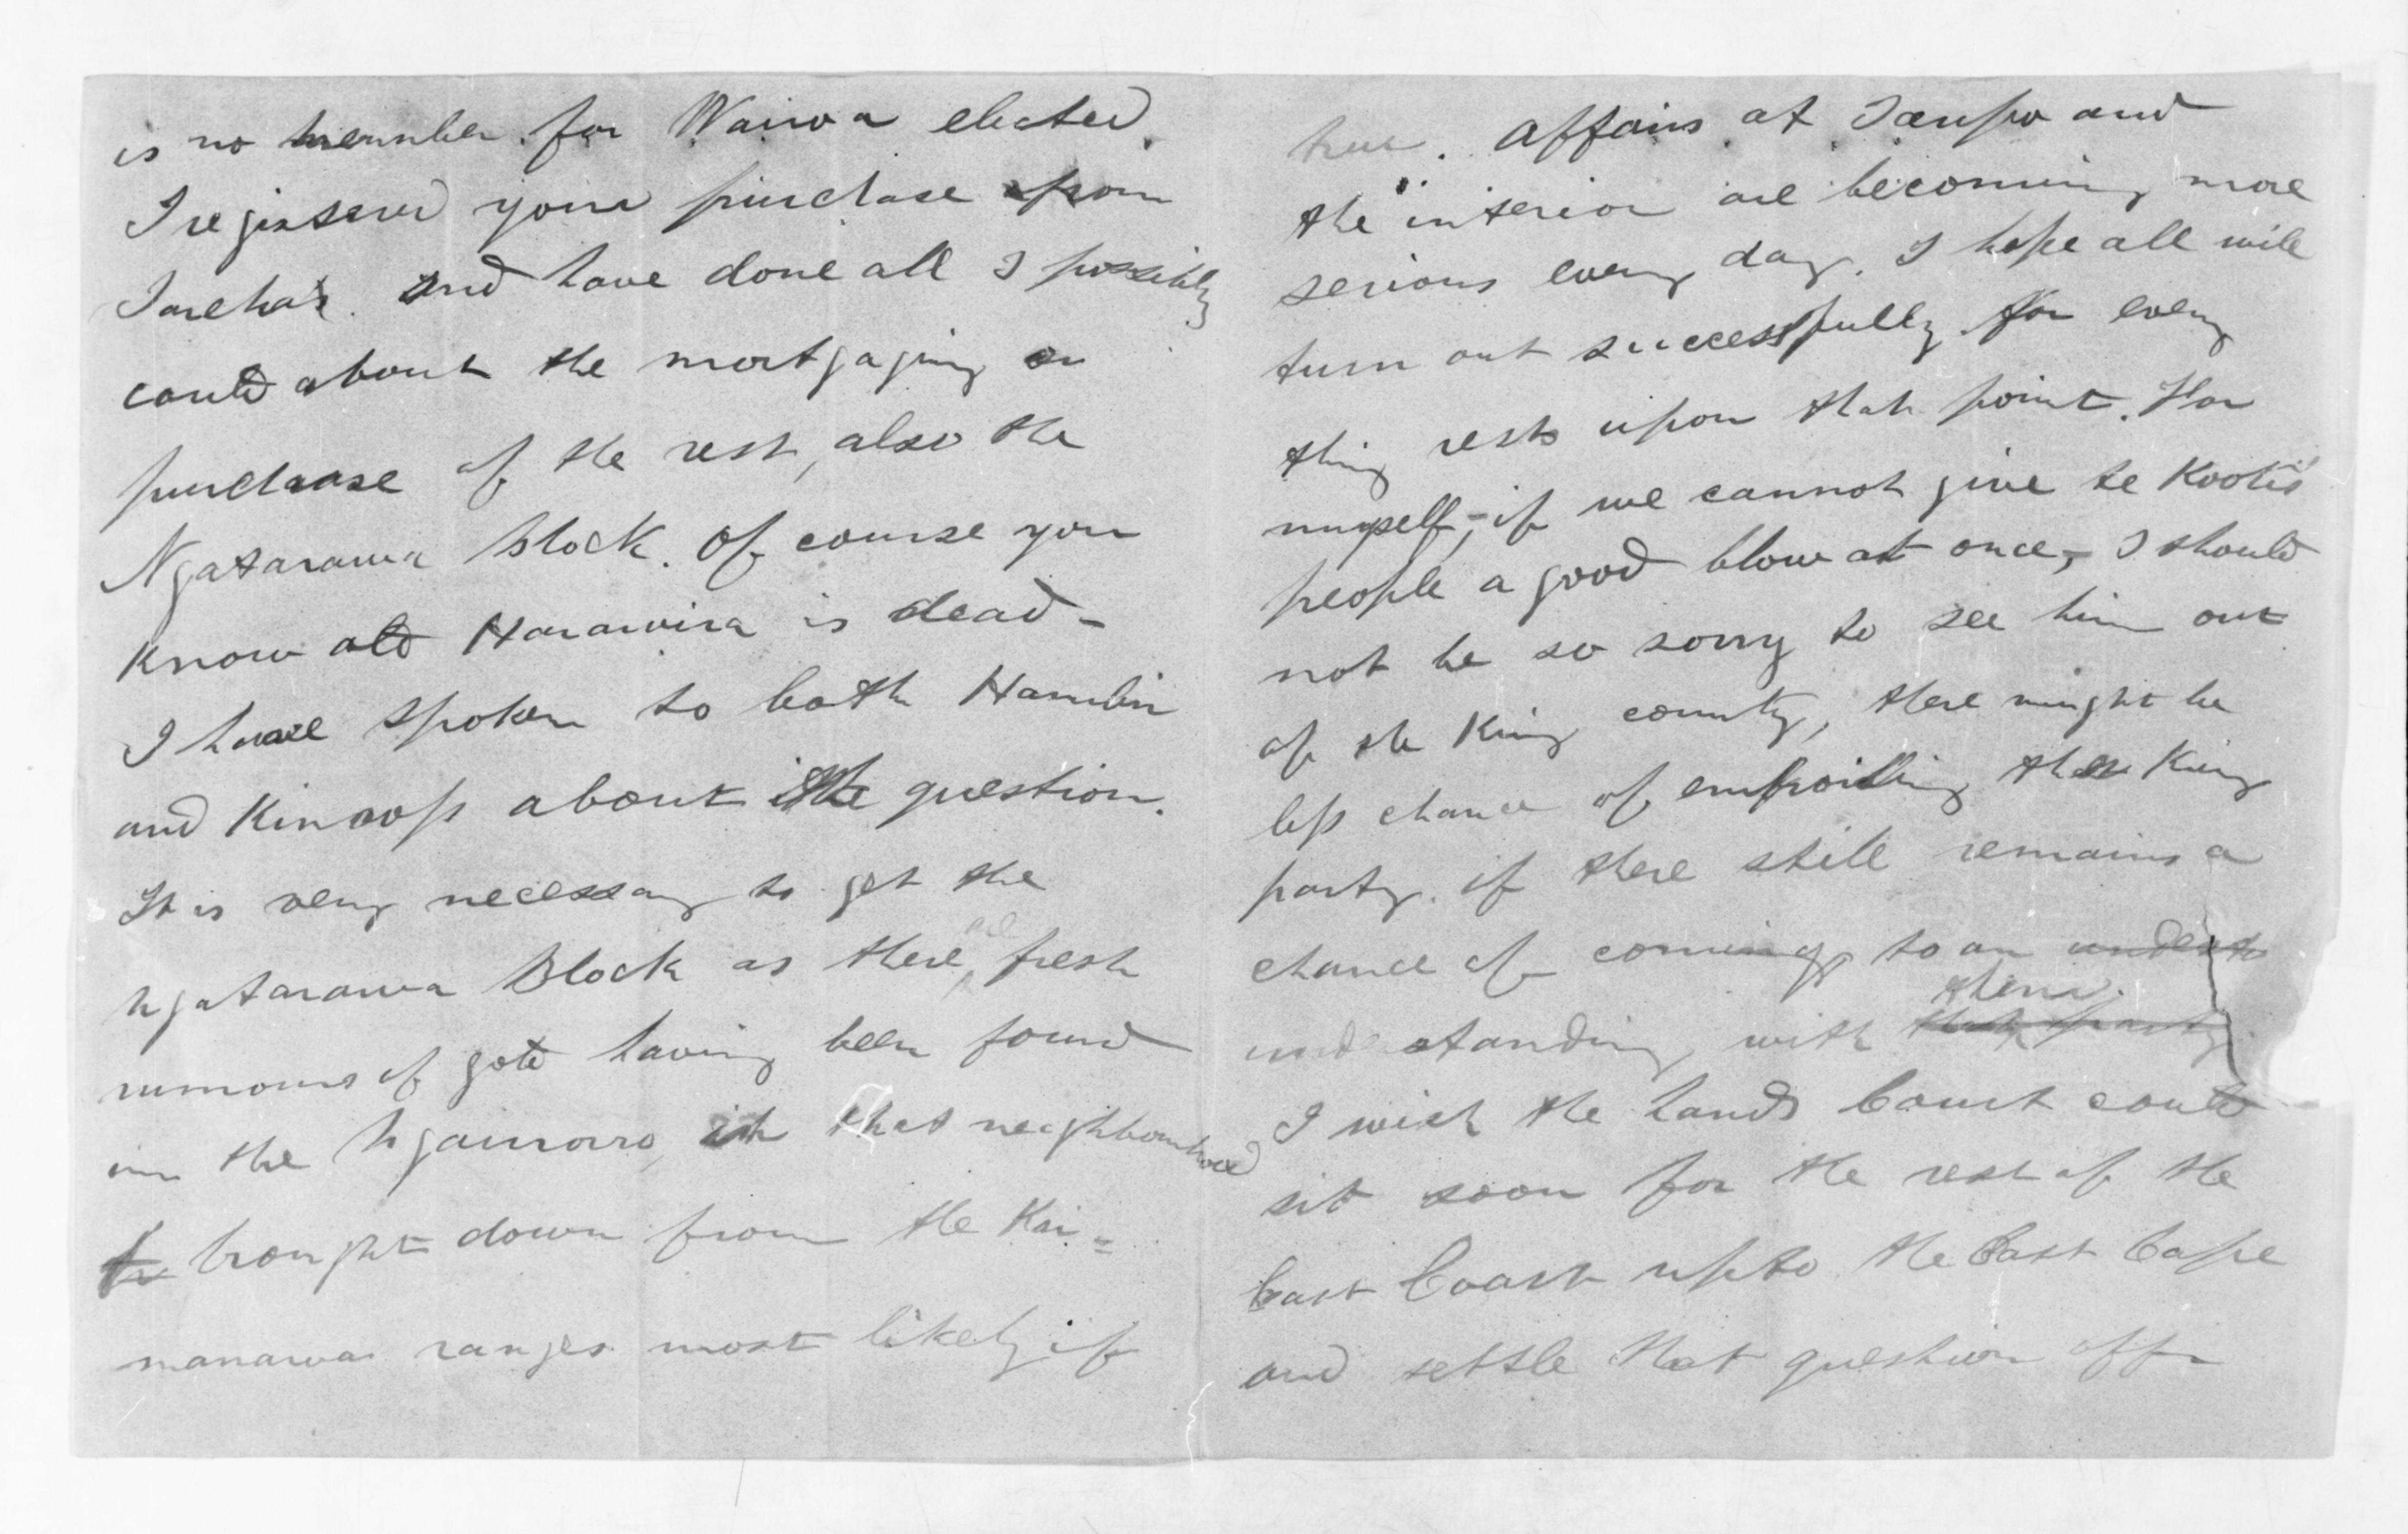 is no member for Wairoa elected.
I registered your purchase from
Tareha's. and have done all I possibly
could about the mortgaging or
purchase of the rest, also the
Ngatarawa block. Of course you
know old Harawira is dead -
I have spoken to both Hamlin
and Kinross about the question.
It is very necessary to get the
Ngatarawa Block as there are fresh
rumours of gold having been found
in the Ngaruroro, in that neighbourhood
brought down from the Kai=
manawa ranges most likely if
true. Affairs at Taupo and
the interior are becoming more
serious every day. I hope all will
turn out successfully for every
thing rests upon that point. For
myself, - if we cannot give te Kooti's
people a good blow at once, - I should
not be so sorry to see him out
of the King county, there might be
less chance of embroiling the King
party. if there still remains a
chance of coming to an underst
understanding with them. that party
I wish the Lands Court could
sit soon for the rest of the
East Coast up to the East Cape
and settle that question off